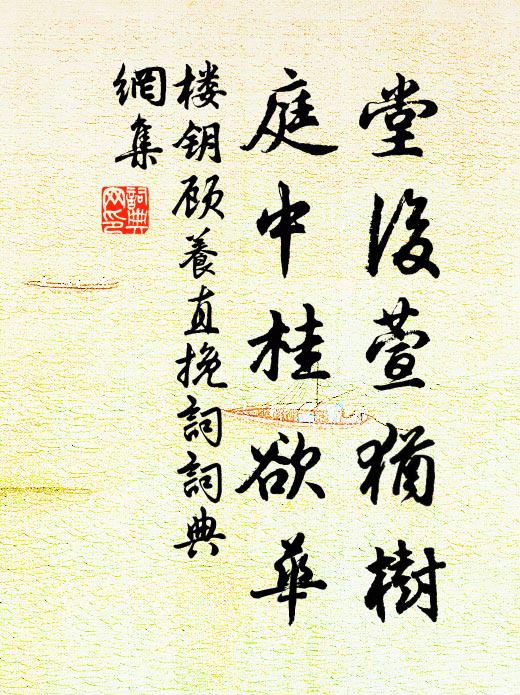 堂後萱猶樹
庭中桂欲華
楼钥顾養直挽詞詞典
網集
詞典
网印